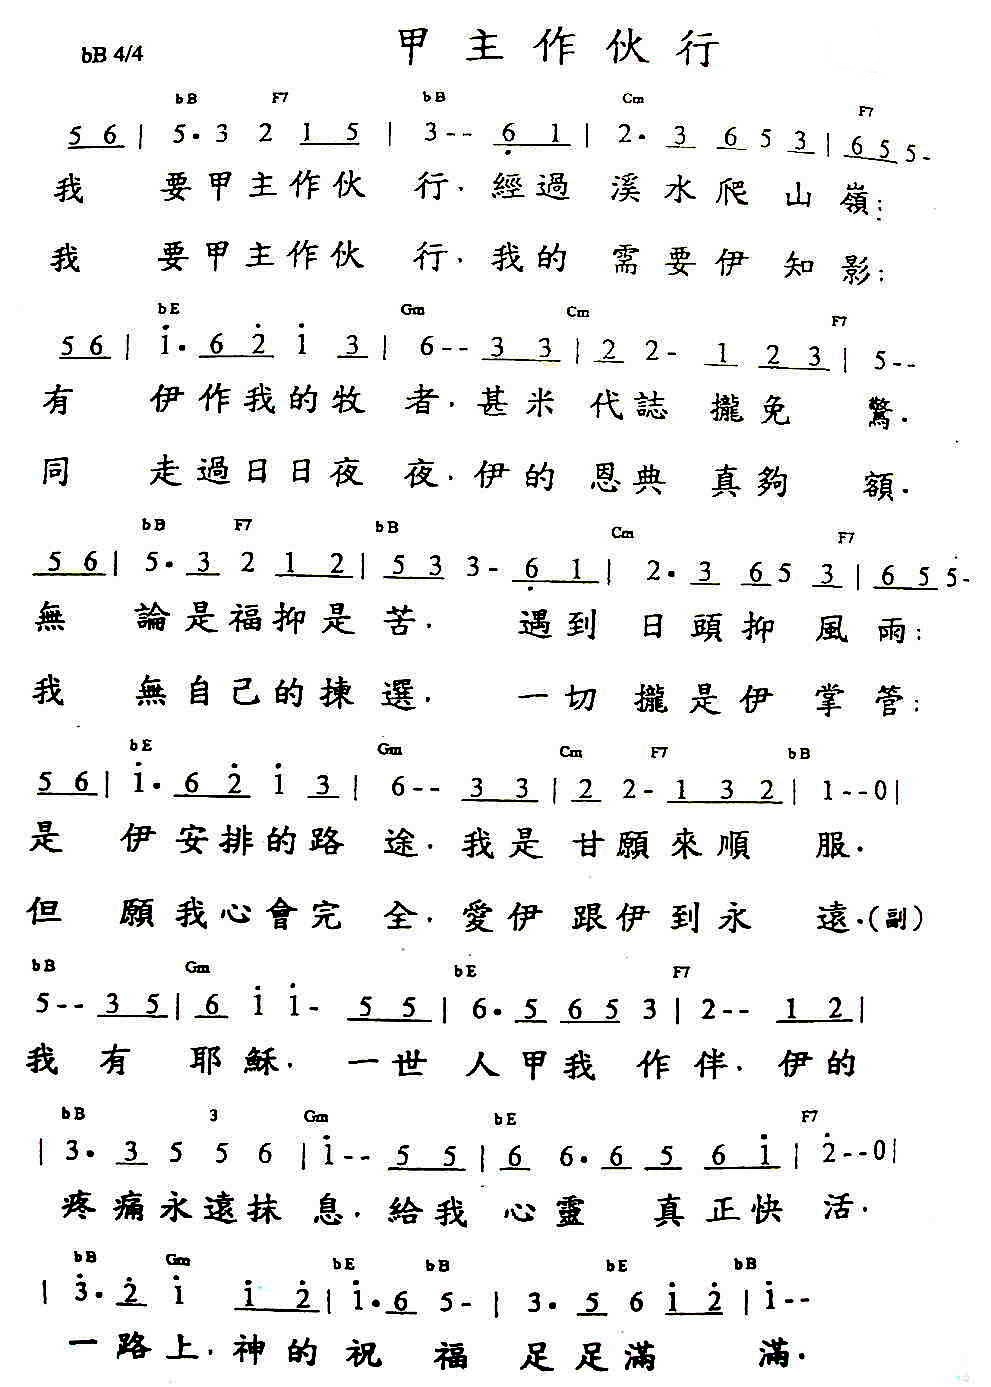 甲主作伙行
bB 4/4
bB F7 bB Cm F7
5 6 | 5. 3 2 1 5 | 3-- 6 1 | 2. 3 6 5 3 | 6 5 5-
我 要甲主作伙 行. 經過 溪水爬山嶺;
我 要甲主作伙 行. 我的 需要伊知影;
bE Gm Cm F7
5 6 | i. 6 2 i 3 | 6-- 3 3 | 2 2- 1 2 3 | 5--
有 伊作我的牧 者. 甚米 代誌 攏免 驚.
同 走過日日夜 夜. 伊的 恩典 真夠 額.
bB F7 bB Cm F7
5 6 | 5. 3 2 1 2 | 5 3 3- 6 1 | 2. 3 6 5 3 | 6 5 5-
無 論是福抑是 苦. 遇到 日頭抑風雨;
我 無自己的揀 選. 一切 攏是伊掌管;
bE Gm Cm F7 bB
5 6 | i. 6 2 i 3 | 6-- 3 3 | 2 2- 1 3 2 | 1--0|
是 伊安排的路 途. 我是 甘願來順 服.
但 願我心會完 全. 愛伊 跟伊到永 遠.(副)
bB Gm bE F7
5-- 3 5 | 6 i i- 5 5 | 6. 5 6 5 3 | 2-- 1 2 |
我 有 耶穌. 一世 人甲我 作伴. 伊的
bB 3 Gm bE F7
| 3. 3 5 5 6 | i-- 5 5 | 6 6. 6 5 6 i | 2--0|
疼痛永遠抹 息. 給我 心靈 真正快 活.
bB Gm bE bB bE bB
| 3. 2 i i 2 | i. 6 5- | 3. 5 6 i 2 | i--
一路上. 神的祝 福 足足滿 滿.